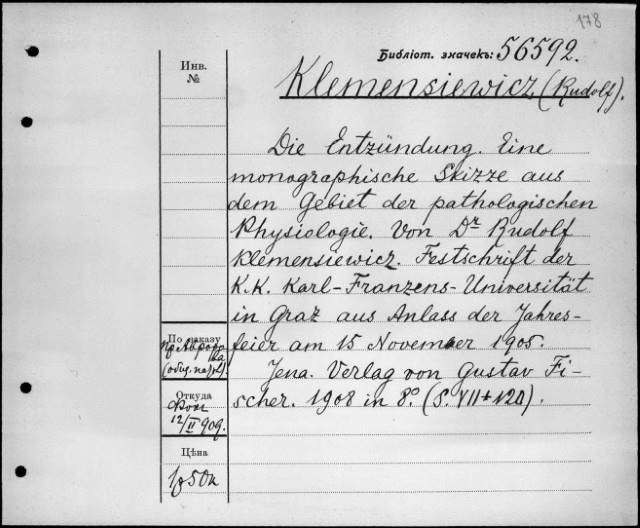 178
Библіот. значекъ: 56592.
Инв.
№
Klemensiewicz, (Rudolf).
Die Entzündung. Eine
monographische Skizze aus
dem Gebiet der pathologischen
Physiologie. Von Dr Rudolf
Klemensiewicz. Festschrift der
K.K. Karl-Franzens-Universität
in Graz aus Anlass der Jahres-
feier am 15 November 1905.
Jena. Verlag von Gustav Fi-
scher. 1908 in 8º. (S. VII+120).
По заказу
Откуда
12/II 909.
Цѣна
1р 50к